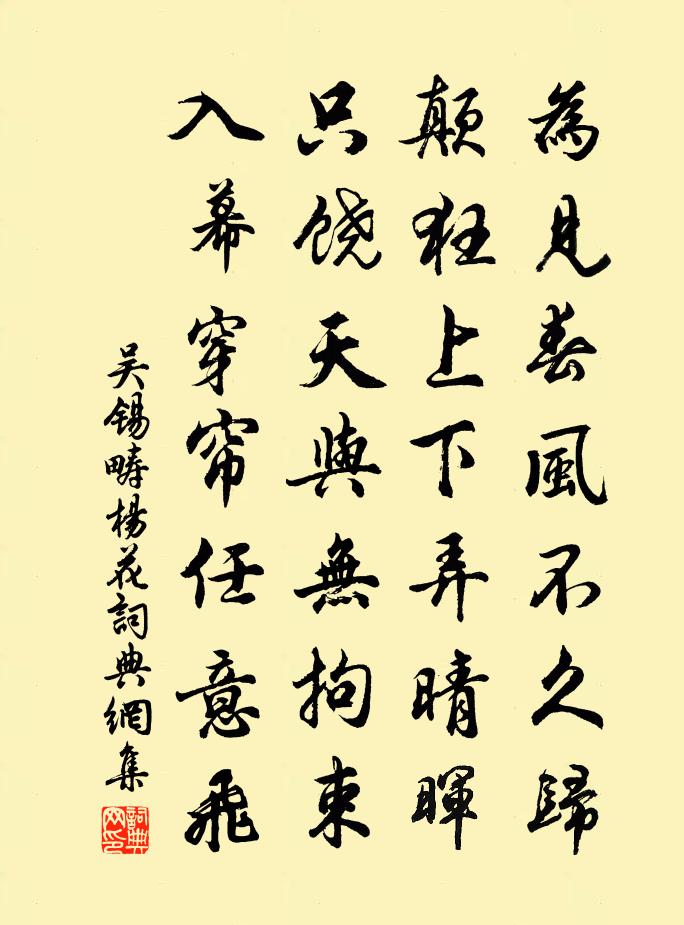 為見春風不久歸
顛狂上下弄晴暉
只饶天與無拘束
入幕穿帘任意飛
吴锡疇楊花詞典網集
詞典网印